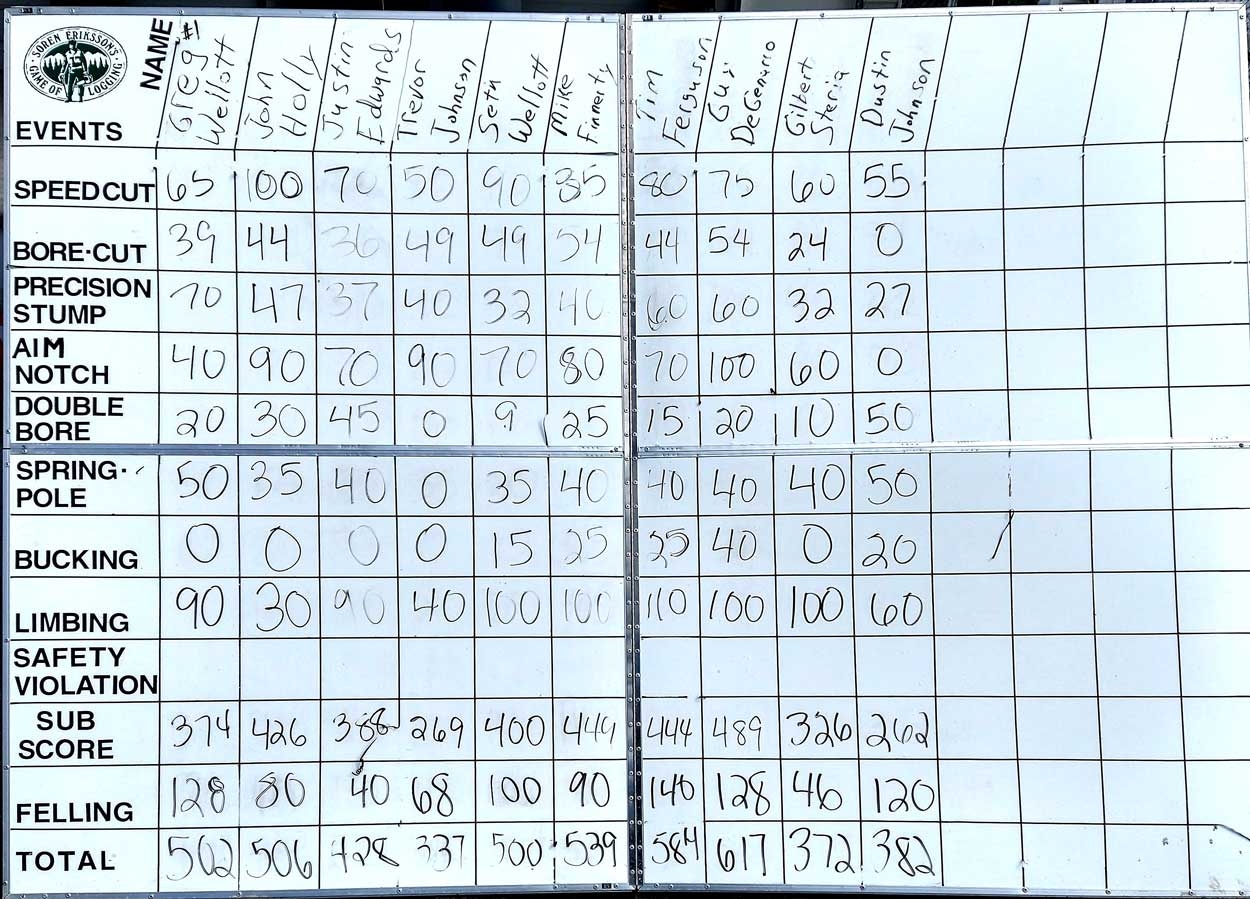 SOREN ERIKSSON'S GAME OF LOGGING
NAME #1 Greg Wellott John Holly Justin Edwards Trevor Johnson Seth Wellott Mike Finnerty Tim Ferguson Guy DeGenaro Gilbert Steria Dustin Johnson
EVENTS
SPEED CUT 65 100 70 50 90 85 80 75 60 55
BORE-CUT 39 44 36 49 49 54 44 54 24 0
PRECISION STUMP 70 47 37 40 32 40 60 60 32 27
AIM NOTCH 40 90 70 90 70 80 70 100 60 0
DOUBLE BORE 20 30 45 0 9 25 15 20 10 50
SPRING-POLE 50 35 40 0 35 40 40 40 40 50
BUCKING 0 0 0 0 15 25 25 40 0 20
LIMBING 90 30 90 40 100 100 110 100 100 60
SAFETY VIOLATION
SUB SCORE 374 426 388 269 400 449 444 489 326 262
FELLING 128 80 40 68 100 90 140 128 46 120
TOTAL 502 506 428 337 500 539 584 617 372 382